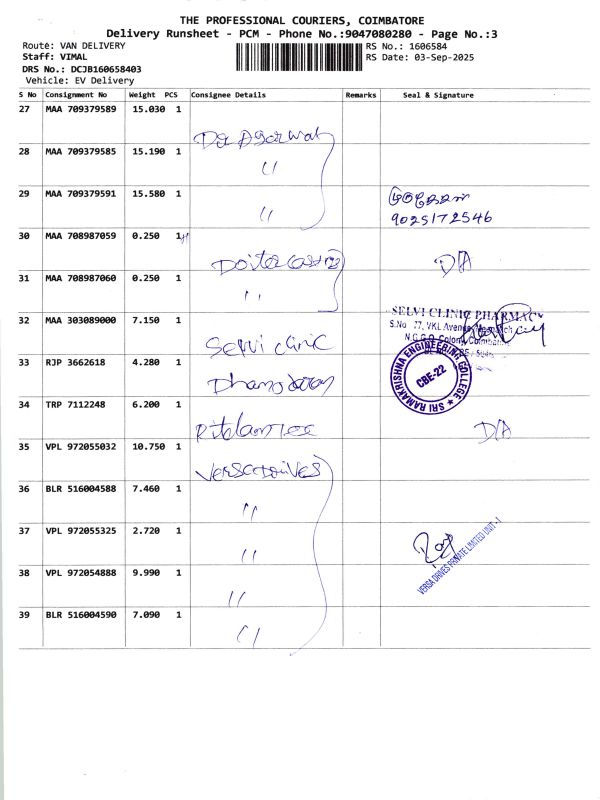 THE PROFESSIONAL COURIERS, COIMBATORE
Delivery Runsheet - PCM - Phone No.:9047080280 - Page No.:3
Route: VAN DELIVERY
RS No.: 1606584
Staff: VIMAL
RS Date: 03-Sep-2025
DRS No.: DCJB160658403
Vehicle: EV Delivery
S No Consignment No Weight PCS Consignee Details Remarks Seal & Signature
27 MAA 709379589 15.030 1
28 MAA 709379585 15.190 1 "
29 MAA 709379591 15.580 1 "
9025172546
30 MAA 708987059 0.250 1 D/A
31 MAA 708987060 0.250 1 "
32 MAA 303089000 7.150 1 Selvi clinic
SELVI CLINIC PHARMACY
S.No 77, VKL Avenue
N.G.G.O. Colony, Coimbatore
33 RJP 3662618 4.280 1
SRI RAMAKRISHNA ENGINEERING COLLEGE
CBE-22
34 TRP 7112248 6.200 1 D/A
35 VPL 972055032 10.750 1
36 BLR 516004588 7.460 1 "
37 VPL 972055325 2.720 1 "
VERSA DRIVES PRIVATE LIMITED UNIT - I
38 VPL 972054888 9.990 1 "
39 BLR 516004590 7.090 1 "